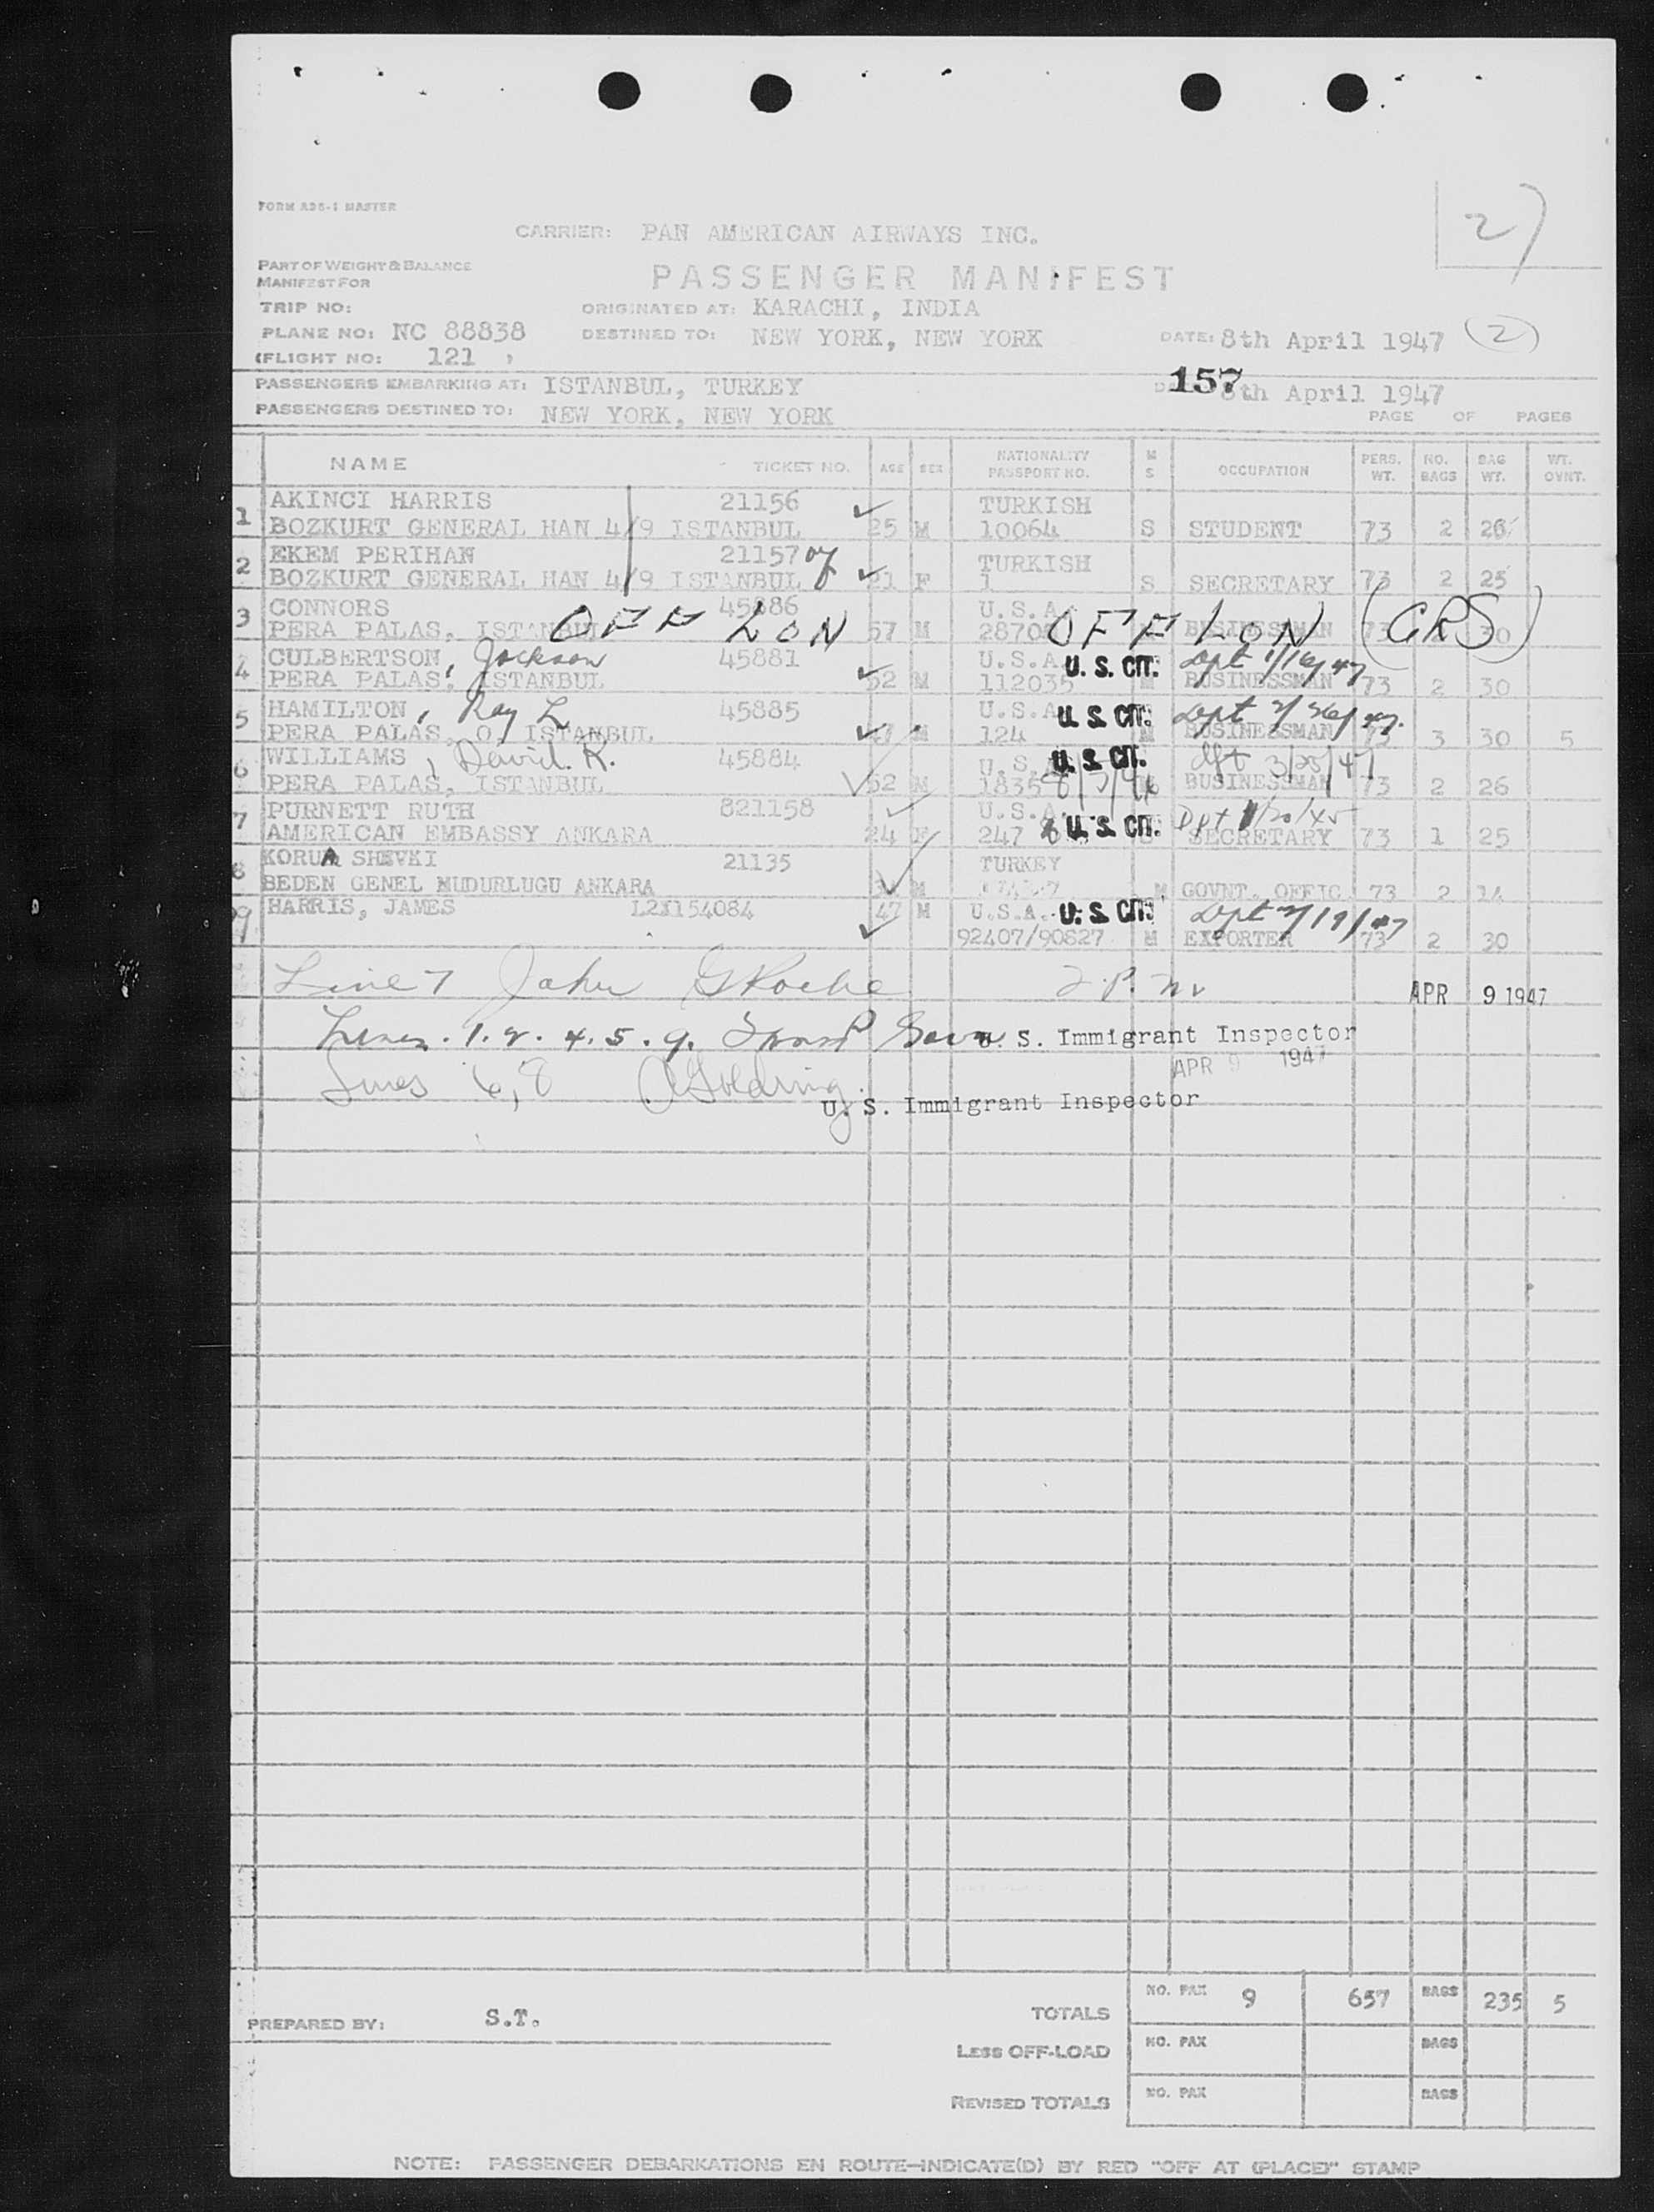 2
FORM ADS-1 MASTER
CARRIER: PAN AMERICAN AIRWAYS INC.
PART OF WEIGHT & BALANCE
MANIFEST FOR
PASSENGER MANIFEST
TRIP NO: ORIGINATED AT: KARACHI, INDIA
PLANE NO: NC 88838 DESTINED TO: NEW YORK, NEW YORK DATE: 8th April 1947 2
(FLIGHT NO: 121 )
PASSENGERS EMBARKING AT: ISTANBUL, TURKEY 157 8th April 1947
PASSENGERS DESTINED TO: NEW YORK, NEW YORK PAGE OF PAGES
NAME TICKET NO. AGE SEX NATIONALITY PASSPORT NO. M S OCCUPATION PERS. WT. NO. BAGS BAG WT. WT. OVNT.
1 AKINCI HARRIS 21156 TURKISH
BOZKURT GENERAL HAN 4/9 ISTANBUL 25 M 10064 S STUDENT 73 2
2 EKEM PERIHAN 21157 TURKISH
BOZKURT GENERAL HAN 4/9 ISTANBUL 21 F 1 S SECRETARY 73 2 25
3 CONNORS 45886 U.S.A.
PERA PALAS, ISTANBUL OFF LON 57 M OFF LON BUSINESSMAN (GRS)
4 CULBERTSON, Jackson 45881 U.S.A. U. S. CIT. Dpt 1/16/47
PERA PALAS, ISTANBUL 52 M 112035 M BUSINESSMAN 73 2 30
5 HAMILTON, Ray L 45885 U.S.A. U. S. CIT. Dpt 2/26/47.
PERA PALAS, ISTANBUL M 124 M BUSINESSMAN 3 30 5
6 WILLIAMS, David. R. 45884 U.S.A. U. S. CIT. dpt 3/25/47
PERA PALAS, ISTANBUL 52 M BUSINESSMAN 73 2 26
7 PURNETT RUTH 821158 U.S.A. U. S. CIT. Dpt
AMERICAN EMBASSY ANKARA 24 F 247 SECRETARY 73 1 25
8 SHEVKI 21135 TURKEY
BEDEN GENEL MUDURLUGU ANKARA M M GOVNT. OFFIC 73 2 14
9 HARRIS, JAMES 47 M U.S.A. U. S. CIT. Dpt 2/19/47
92407/90827 M EXPORTER 73 2 30
Line 7 John G Roche APR 9 1947
Lines. 1. 2. 4. 5. 9. U. S. Immigrant Inspector
APR 9 1947
Lines 6, 8 Golding
U. S. Immigrant Inspector
NO. PAX 9 657 BAGS 235 5
PREPARED BY: S.T. TOTALS
LESS OFF-LOAD NO. PAX BAGS
REVISED TOTALS NO. PAX BAGS
NOTE: PASSENGER DEBARKATIONS EN ROUTE—INDICATE(D) BY RED "OFF AT (PLACE)" STAMP